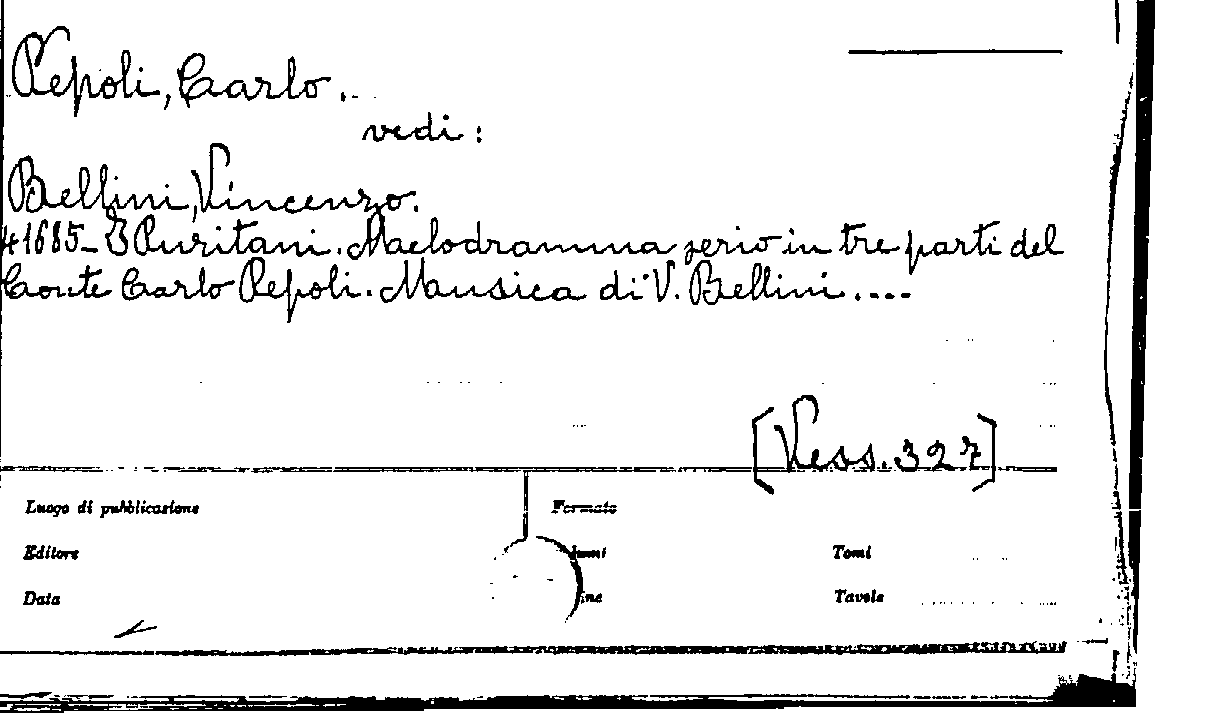 Pepoli, Carlo.
vedi:
Bellini, Vincenzo.
41685_ I Puritani. Melodramma serio in tre parti del
Conte Carlo Pepoli. Musica di V. Bellini....
[Vess. 327]
Luogo di pubblicazione Formato
Editore Tomi
Data Tavole